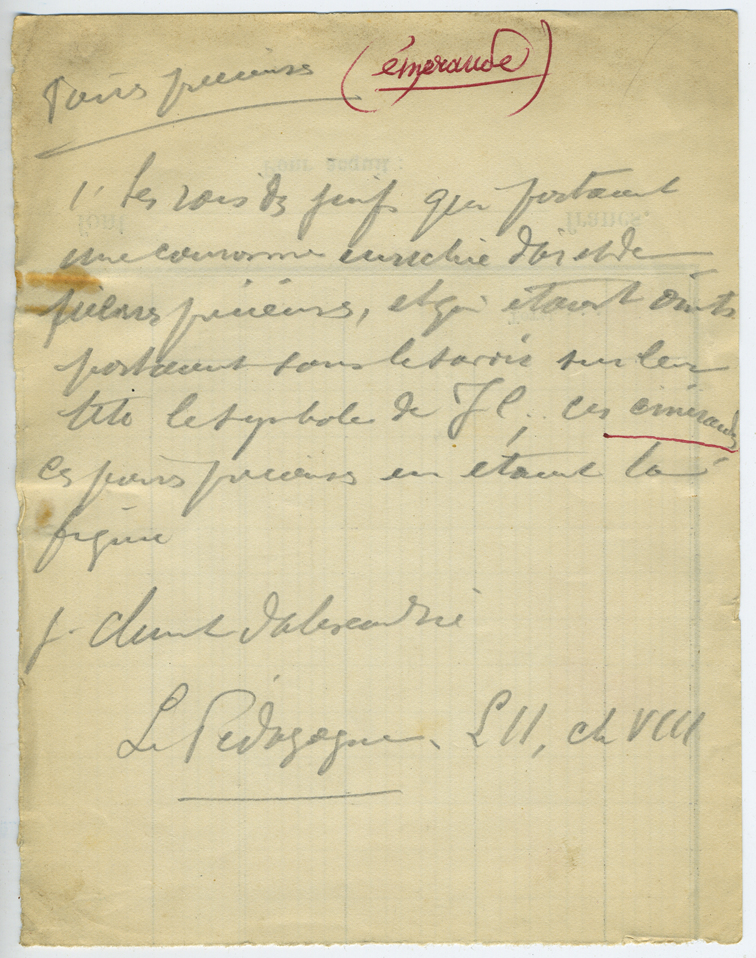 Pierres précieuses (émeraude)
1° Les rois des juifs qui portaient
une couronne enrichie d'or et de
pierres précieuses, et qui étaient oints
portaient sans le savoir sur leur
tête le symbole de J C, ces émeraudes
ces pierres précieuses en étaient la
figure
Clément d'Alexandrie
Le Pédagogue. L II, ch VIII